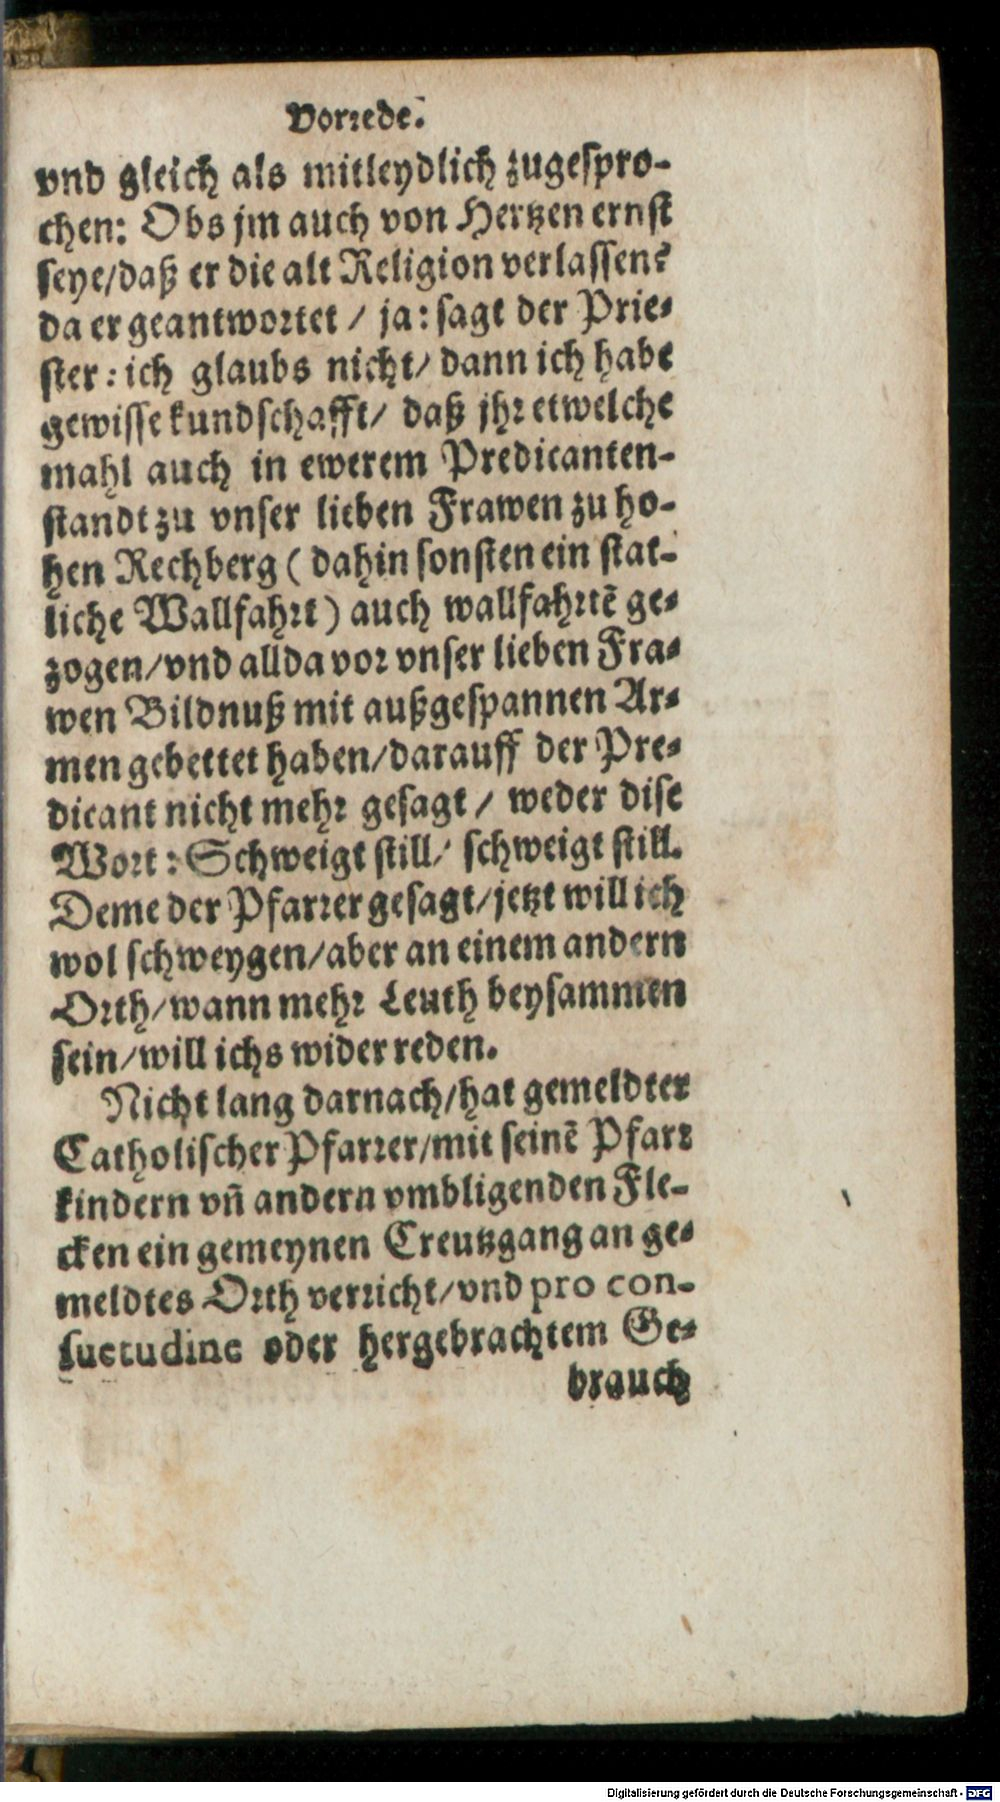 Vorrede.
vnd gleich als mitleydlich zugespro-
chen: Obs jm auch von Hertzen ernst
seye/daß er die alt Religion verlassen?
da er geantwortet / ja: sagt der Prie-
ster: ich glaubs nicht/ dann ich habe
gewisse kundschafft/ daß jhr etwelche
mahl auch in ewerem Predicanten-
standt zu vnser lieben Frawen zu ho-
hen Rechberg ( dahin sonsten ein stat-
liche Wallfahrt ) auch wallfahrtē ge-
zogen/vnd allda vor vnser lieben Fra-
wen Bildnuß mit außgespannen Ar-
men gebettet haben/darauff der Pre-
dicant nicht mehr gesagt / weder dise
Wort: Schweigt still/ schweigt still.
Deme der Pfarrer gesagt/jetzt will ich
wol schweygen/aber an einem andern
Orth/wann mehr Leuth beysammen
sein/will ichs wider reden.
Nicht lang darnach/hat gemeldter
Catholischer Pfarrer/mit seinē Pfarr
kindern vñ andern vmbligenden Fle-
cken ein gemeynen Creutzgang an ge-
meldtes Orth verricht/vnd pro con-
suetudine oder hergebrachtem Ge-
brauch
Digitalisierung gefördert durch die Deutsche Forschungsgemeinschaft - DFG